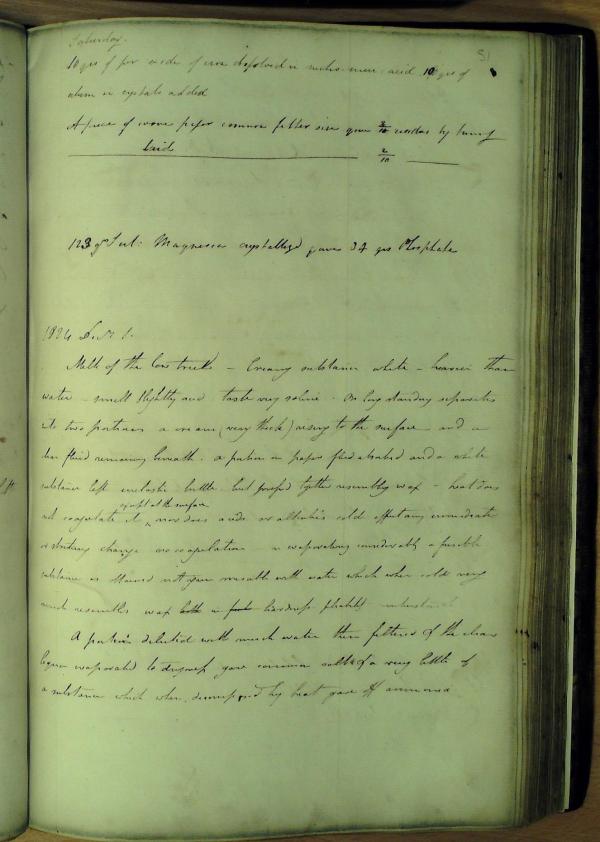 Saturday.
51
10 grs of per oxide of iron dissolved in nitro-muri acid 10 grs of
alum in crystals added
A piece of wove paper common filter size gave 3/10 residue by burning
laid 2/10
123 grs Sul: Magnesia crystallized gave 34 grs Phosphate
1824 Decr 1.
Milk of the Cow tree – Creamy substance white – heavier than
water – smell slightly acid taste very saline. On long standing separates
into two portions a cream (very thick) rising to the surface and a
clear fluid remaining beneath. a portion on paper fluid absorbed and a white
substance left inelastic brittle but pressed together resembling wax – heat does
except at the surface
not coagulate it, nor does acids or alkalies cold effect any immediate
or striking change no coagulation – on evaporating considerably a fusible
substance is obtained not again miscible with water which when cold very
much resembles wax both in hardness
A portion diluted with much water then filtered & the clear
liquor evaporated to dryness gave common salt & a very little of
a substance which when decomposed by heat gave off ammonia